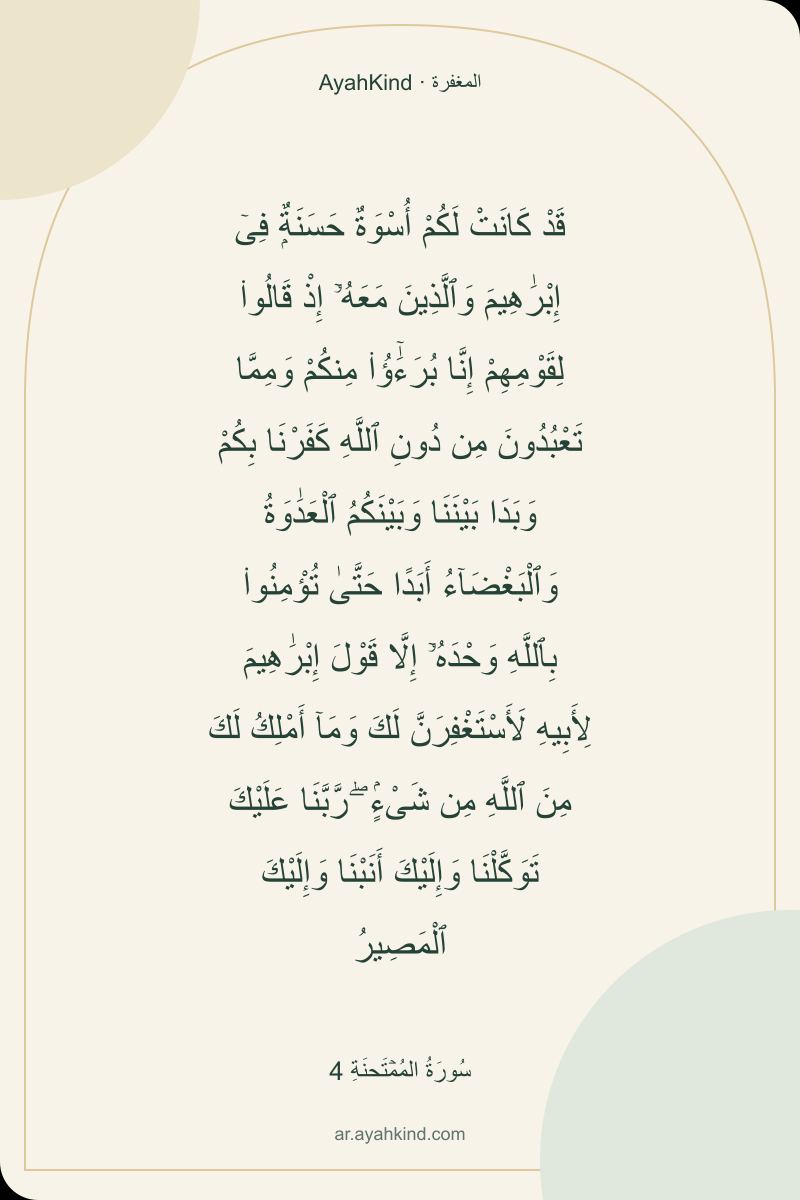 AyahKind · المغفرة
قَدْ كَانَتْ لَكُمْ أُسْوَةٌ حَسَنَةٌۭ فِىٓ
إِبْرَٰهِيمَ وَٱلَّذِينَ مَعَهُۥٓ إِذْ قَالُوا۟
لِقَوْمِهِمْ إِنَّا بُرَءَٰٓؤُا۟ مِنكُمْ وَمِمَّا
تَعْبُدُونَ مِن دُونِ ٱللَّهِ كَفَرْنَا بِكُمْ
وَبَدَا بَيْنَنَا وَبَيْنَكُمُ ٱلْعَدَٰوَةُ
وَٱلْبَغْضَآءُ أَبَدًا حَتَّىٰ تُؤْمِنُوا۟
بِٱللَّهِ وَحْدَهُۥٓ إِلَّا قَوْلَ إِبْرَٰهِيمَ
لِأَبِيهِ لَأَسْتَغْفِرَنَّ لَكَ وَمَآ أَمْلِكُ لَكَ
مِنَ ٱللَّهِ مِن شَىْءٍۢ ۖ رَّبَّنَا عَلَيْكَ
تَوَكَّلْنَا وَإِلَيْكَ أَنَبْنَا وَإِلَيْكَ
ٱلْمَصِيرُ
سُورَةُ المُمۡتَحنَةِ 4
ar.ayahkind.com